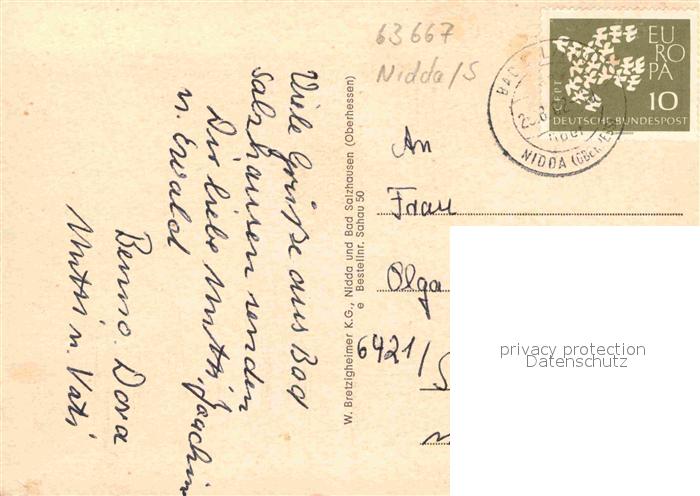 63667
Nidda/S
Viele Grüße aus Bad
Salzhausen senden
Dir liebe Mutti, Joachim
u. Ewald
Benno. Dora
Mutti u. Vati
W. Bretzigheimer K.G., Nidda und Bad Salzhausen (Oberhessen)
e Bestellnr. Sahau 50
EU
RO
PA
10
DEUTSCHE BUNDESPOST
NIDDA (OBERHESS
An
Frau
Olga
6421/S
privacy protection
Datenschutz